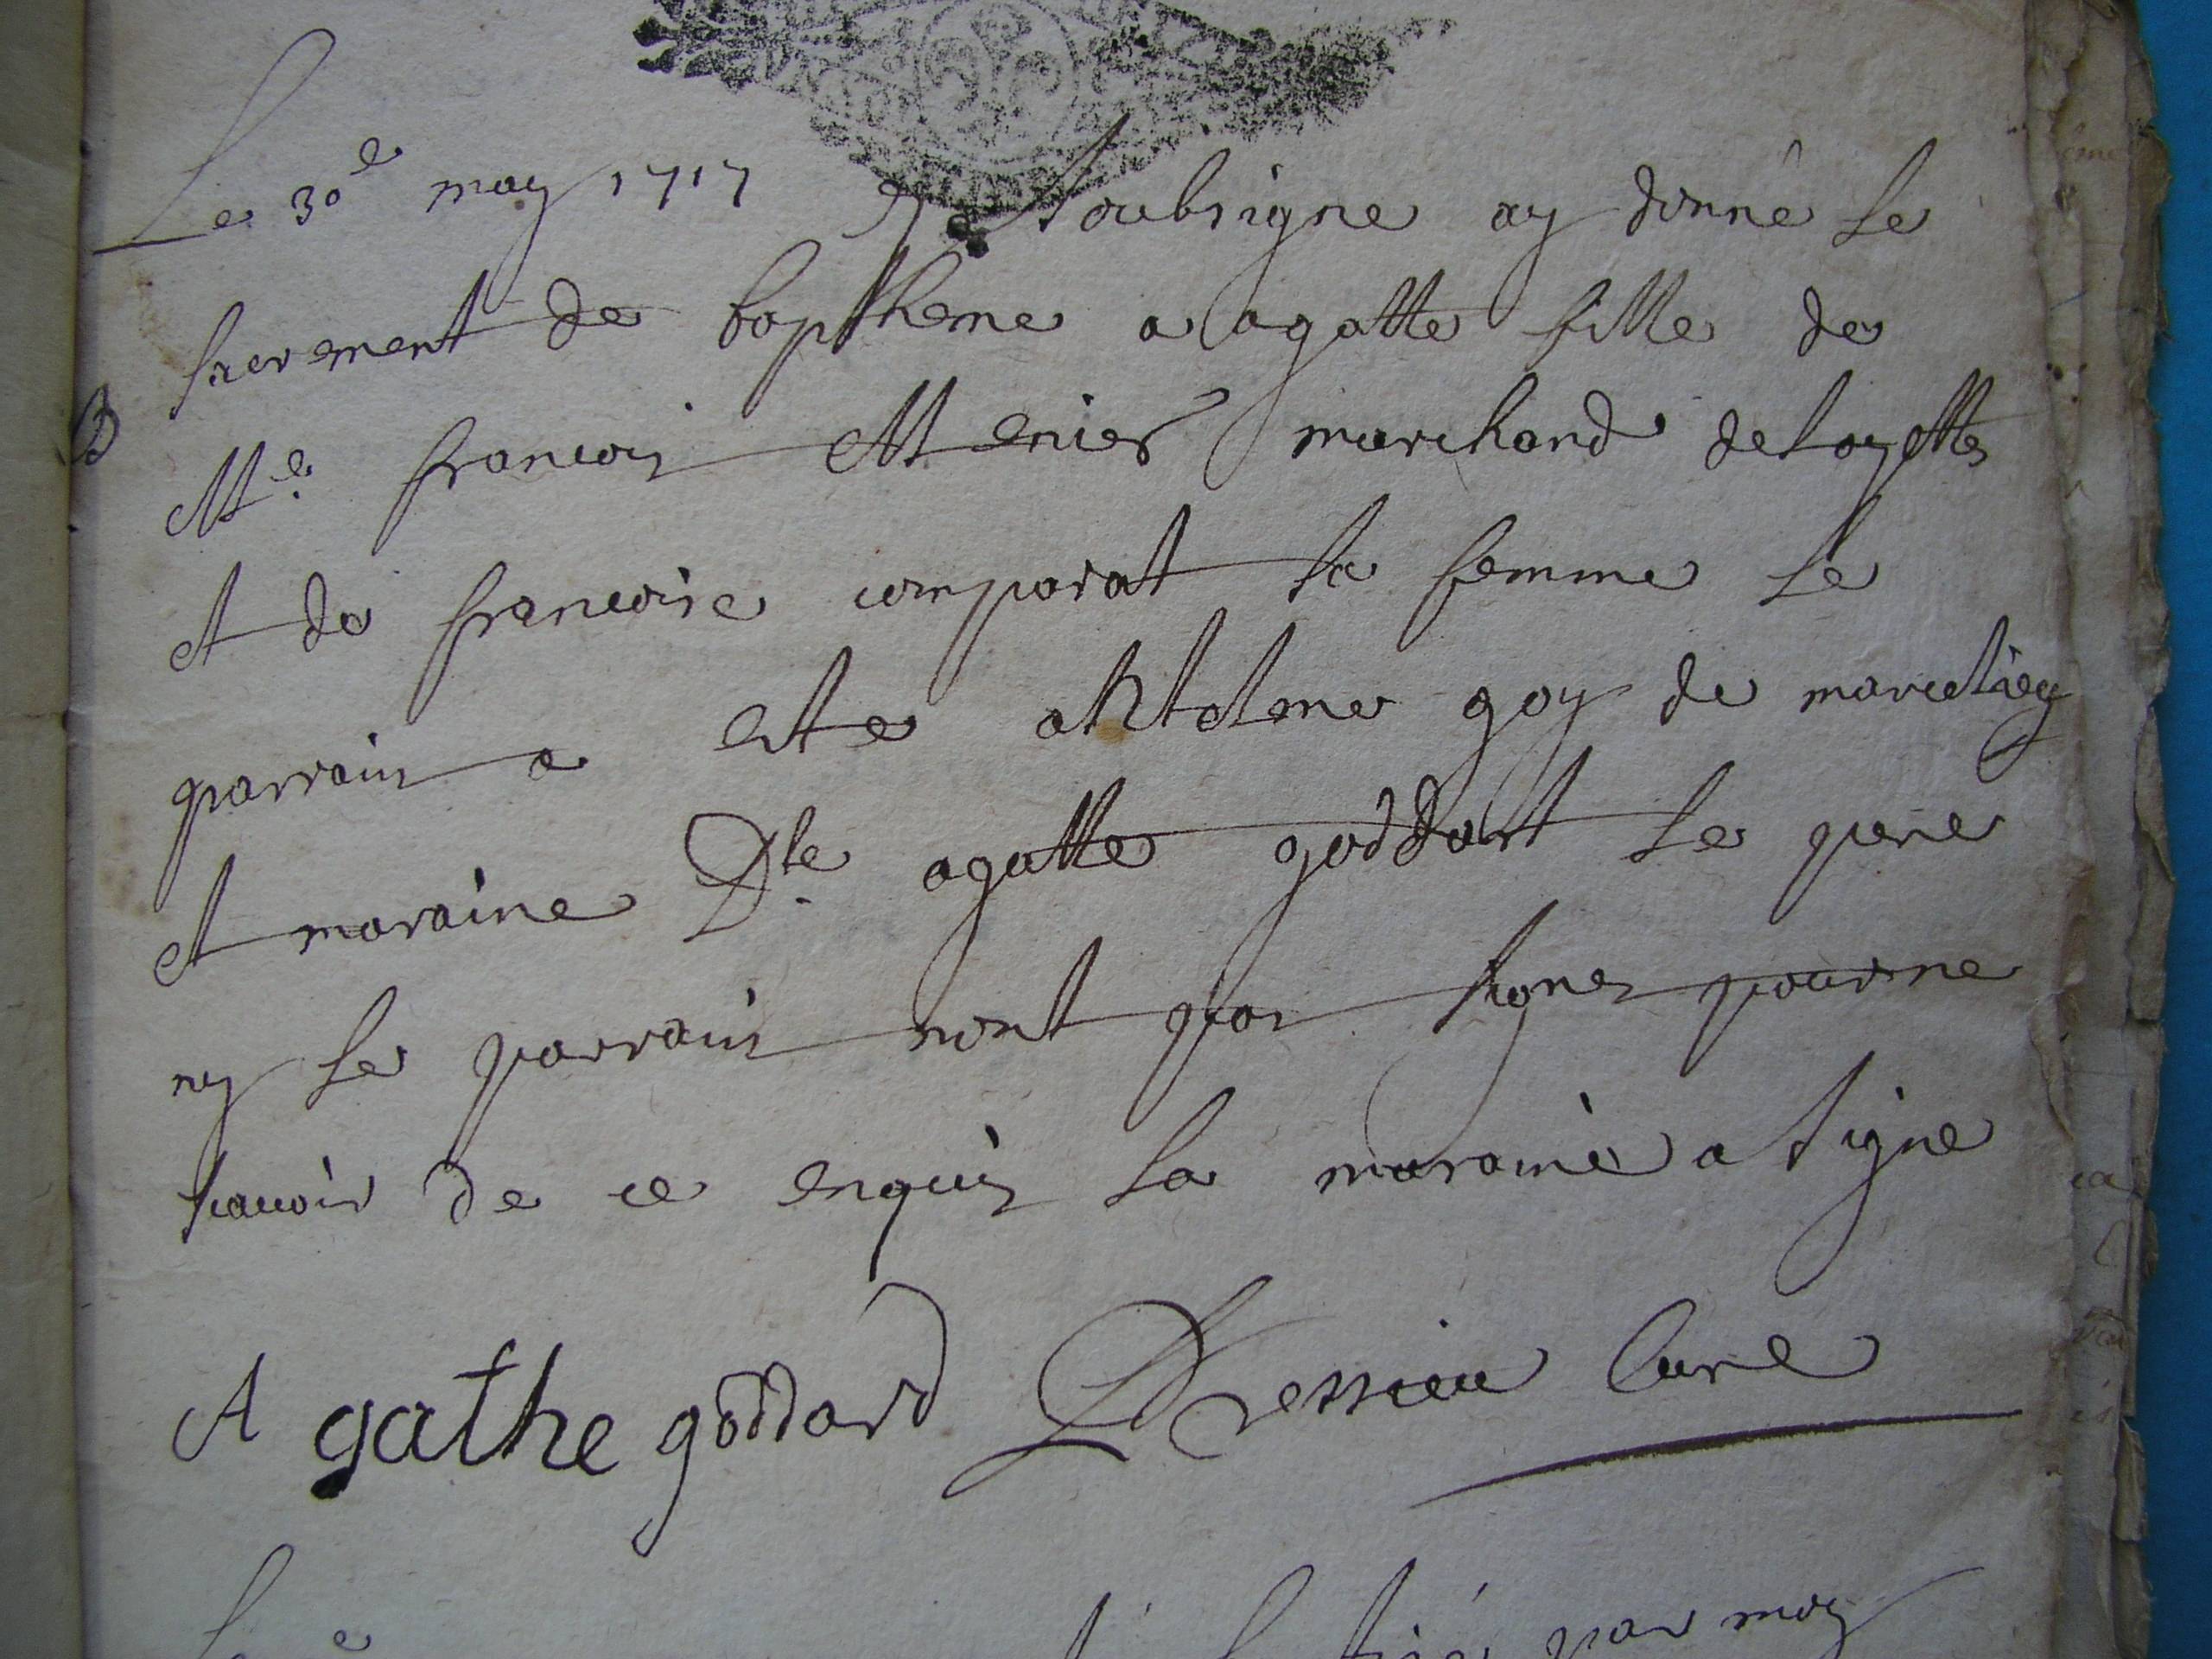 Le 30e may 1717 Je soubsigne ay donné le
sacrement de baptheme a agatte fille de
Me francois Menier marchand de loyettes
et de francoise comparat sa femme le
parrain a este anthelme goy de marcelieu
et maraine Dlle agatte goddart le pere
ny le parrain nont pas signez pour ne
scavoir de ce enquis la maraine a signe
Agathe goddard Dressieu Curé
par moy